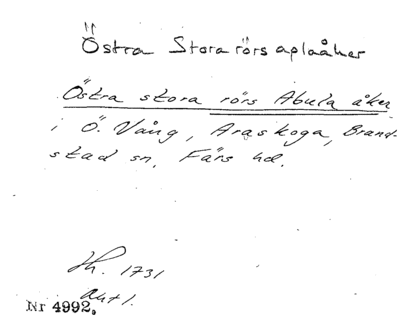 Östra Stora rörs aplaåker
Östra stora rörs Abula åker
i Ö. Vång, Araskoga, Brand-
stad sn, Färs hd.
Hh. 1731
Akt 1.
Nr 4992.